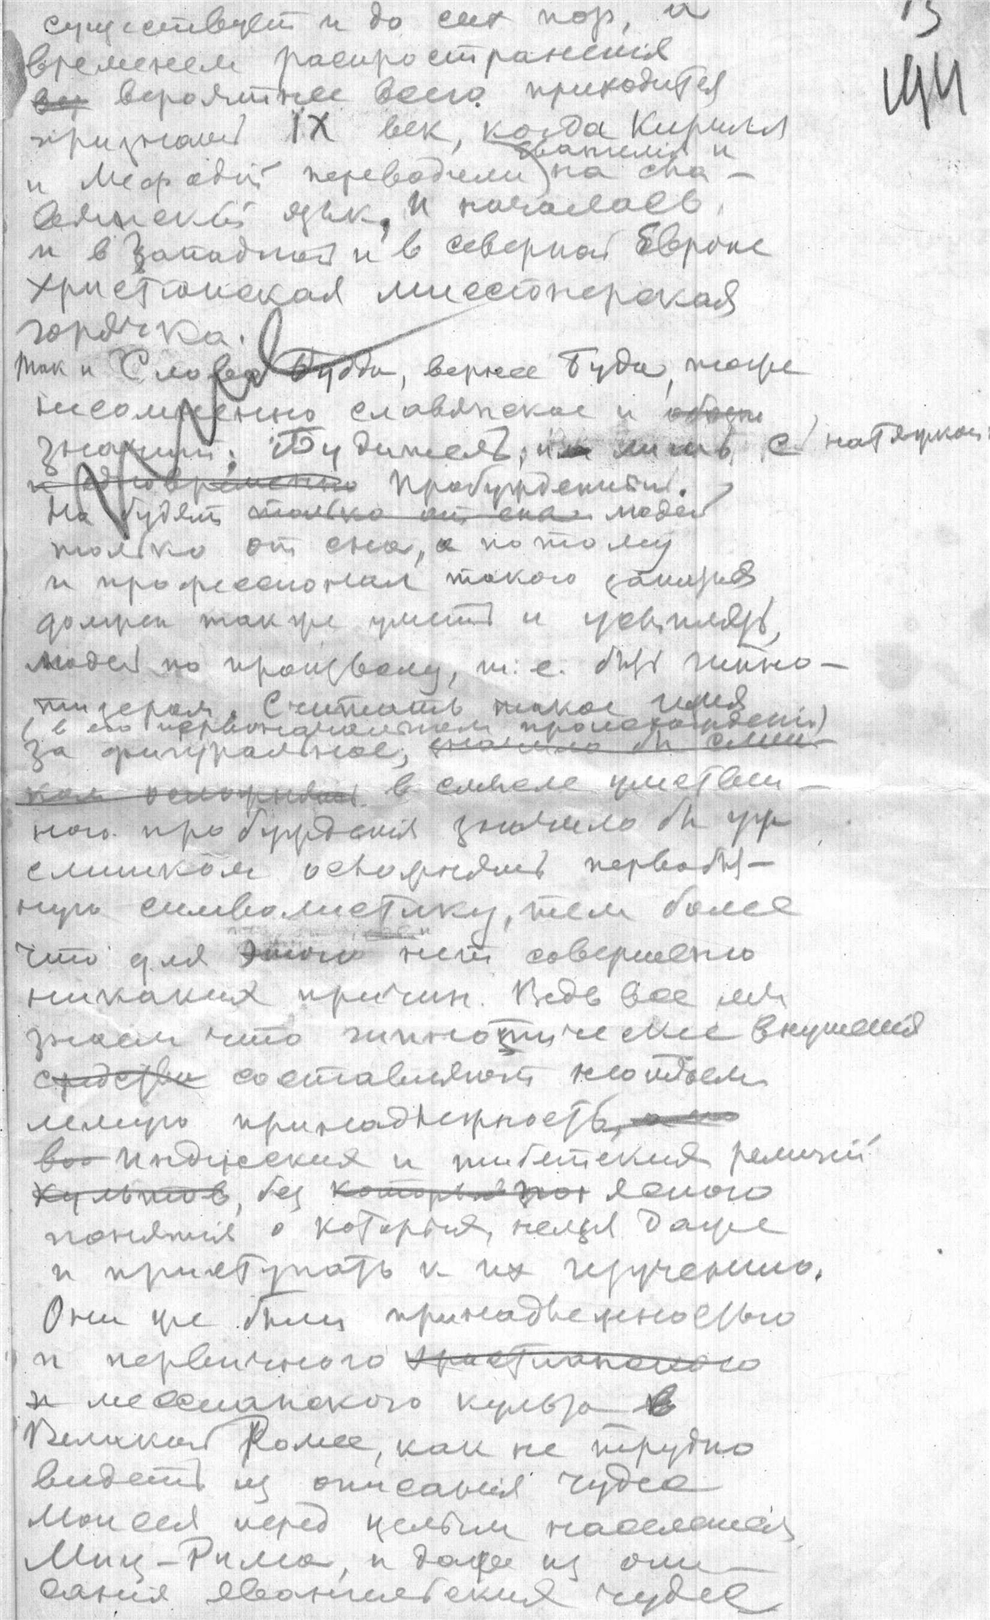 существует и до сих пор, и
13
194
временем распространения
вероятнее всего приходится
признать IX век, когда Кирилл
и Мефодий переводили Евангелия на сла-
вянский язык, и началась
и в Западной и в северной Европе
христианская миссионерская
горячка.
Так и Слово Будда, вернее Буда, тоже
несомненно славянское и
значит: Будитель, и лишь с натяжкой
и одновременно Пробужденный.
Но будят только от сна людей
только от сна, а потому
и профессионал такого занятия
должен также уметь и усыплять
людей по произволу, т. е. быть гипно-
тизером. Считать такое имя
(в его первоначальном происхождении)
за фигуральное, значило бы слиш-
ком осложнять в смысле умствен-
ного пробуждения значило бы уж
слишком осложнять первобыт-
ную символистику, тем более
что для этого нет совершенно
никаких причин. Ведь все мы
знаем что гипнотические внушения
средства составляют неотъем-
лемую принадлежность,
индийских и тибетских религий
культов, без которых ясного
понятия о которых, нельзя даже
и приступать к их изучению.
Они же были принадлежностью
и первичного христианского
и мессианского культа в
Великой Ромее, как не трудно
видеть из описания чудес
Моисея перед целым населением
Миц-Рима, и даже из опи-
сания евангельских чудес